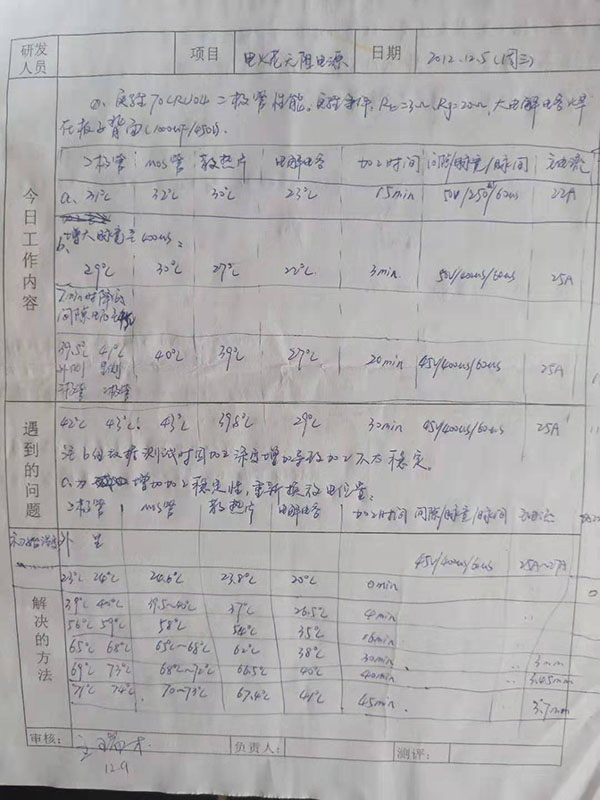 研发人员 项目 电火花无阻电源 日期 2012.12.5(周三)
今日工作内容
a. 实验70CRU04二极管性能,实验条件,Re=3Ω,Rg=20Ω,大电解电容焊
在板子背面(100uF/450V).
二极管 mos管 散热片 电解电容 加工时间 间隙/脉宽/脉间 主电流
a. 31℃ 32℃ 30℃ 23℃ 15min 50V/250us/60us 22A
b. 增大脉宽至400us:
29℃ 30℃ 27℃ 22℃ 3min 50V/400us/60us 25A
7min时降低
间隙电压至45V
39.5℃ 41℃ 40℃ 39℃ 27℃ 20min 45V/400us/60us 25A
外侧 里侧
二极管 二极管
遇到的问题
42℃ 43℃ 43℃ 39.8℃ 29℃ 30min 45V/400us/60us 25A
注b组数据测试时因加工深度增加导致加工不太稳定.
增加加工稳定性,重新换放电位置:
二极管 mos管 散热片 电解电容 加工时间 间隙/脉宽/脉间 主电流
初始温度 外 里 45V/400us/60us 25A~27A
23℃ 24℃ 24.6℃ 23.8℃ 20℃ 0min
解决的方法
39℃ 40℃ 39.5~40℃ 37℃ 26.5℃ 4min
56℃ 59℃ 58℃ 54℃ 35℃ 16min
65℃ 68℃ 65℃~68℃ 62℃ 38℃ 30min 3mm
69℃ 73℃ 68℃~72℃ 66.5℃ 40℃ 40min 3.45mm
71℃ 74℃ 70~73℃ 67.4℃ 41℃ 45min 3.7mm
审核: 负责人: 测评:
12.9